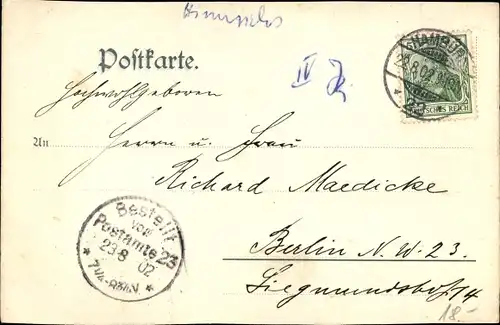 Postkarte.
IV
HAMBURG
23.8.02
DEUTSCHES REICH
Hochwohlgeboren
An Herrn u. Frau
Richard Maedicke
Bestellt
vom
Postamte 23
23 8 02
Berlin N. W. 23.
Siegmundshof 14
18.-